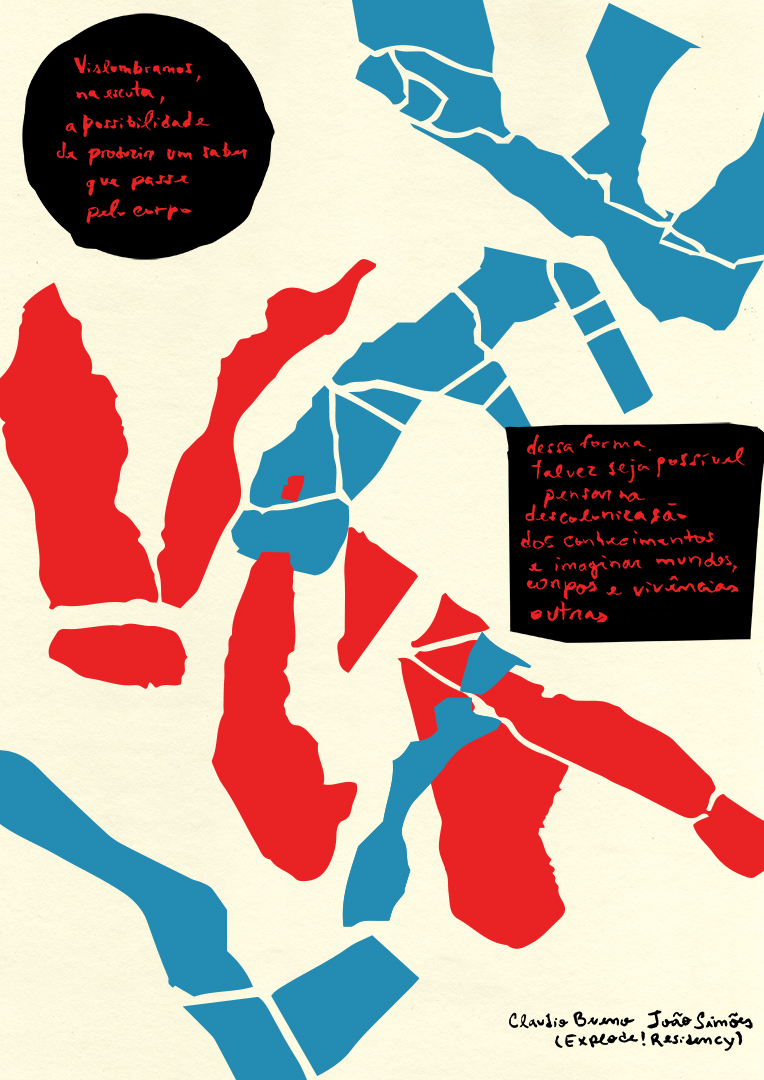 Vislumbramos,
na escuta,
a possibilidade
de produzir um saber
que passe
pelo corpo
dessa forma.
talvez seja possível
pensar na
descolonização
dos conhecimentos
e imaginar mundos,
corpos e vivências
outras
Claudio Bueno João Simões
(Explode! Residency)